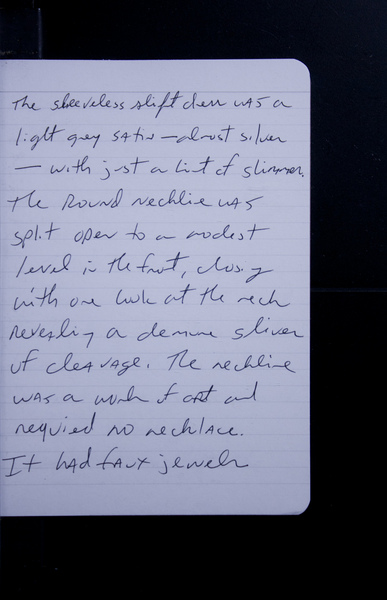 The sleeveless shift dress was a
light grey satin — almost silver
— with just a hint of shimmer.
The Round neckline was
split open to a modest
level in the front, closing
with one hook at the neck
revealing a demure sliver
of cleavage. The neckline
was a work of art and
required no necklace.
It had faux jewels